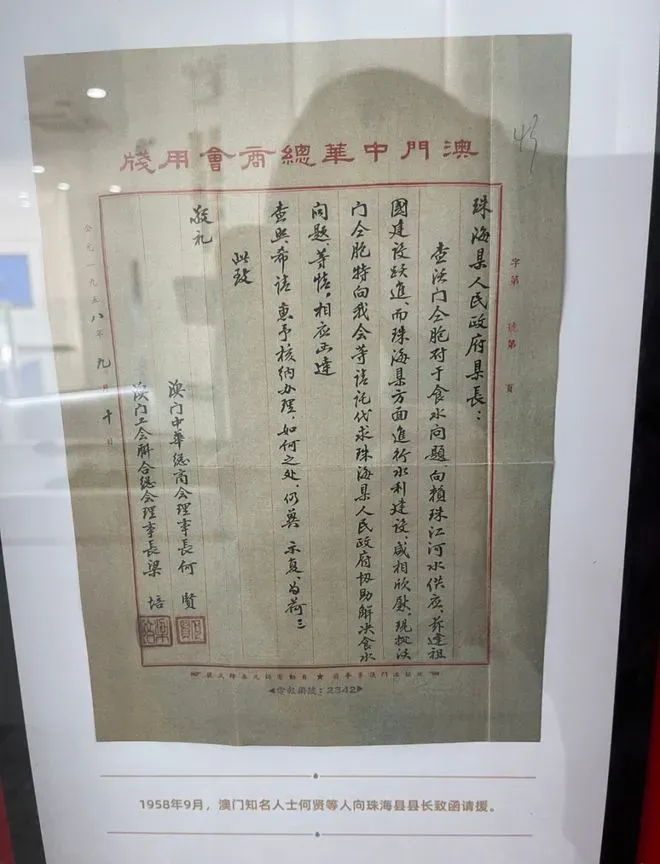 澳門中華總商會用牋
字第 號第 頁
珠海县人民政府县長：
查沃门仝胞对于食水问题向赖珠江河水供应、兹逢祖
國建设跃進、而珠海县方面進行水利建设、咸相欣慰。现据沃
门仝胞特向我会等请讬代求珠海县人民政府协助解决食水
问题、等情。相应函達
查照、希请 惠予核纳办理、如何之处、仍冀 示复、为荷
此致
敬礼
澳门中华总商会理事長何 賢
澳门工会联合总会理事長梁 培
公元一九五八年九月十日
2342
1958年9月，澳门知名人士何贤等人向珠海县县长致函请援。